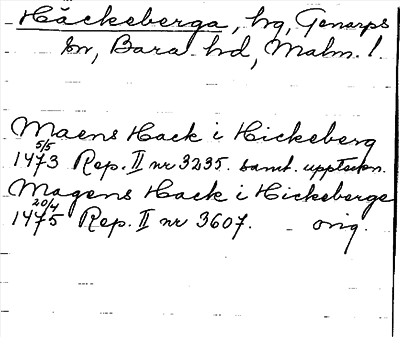 Häckeberga, hg, Genarps
sn, Bara hd, Malm. l.
Maens Hack i Hickeberg
5/5
1473 Rep. II nr 3235. samt. uppteckn.
Magens Hack i Hickeberge
20/4
1475 Rep. II nr 3607. orig.